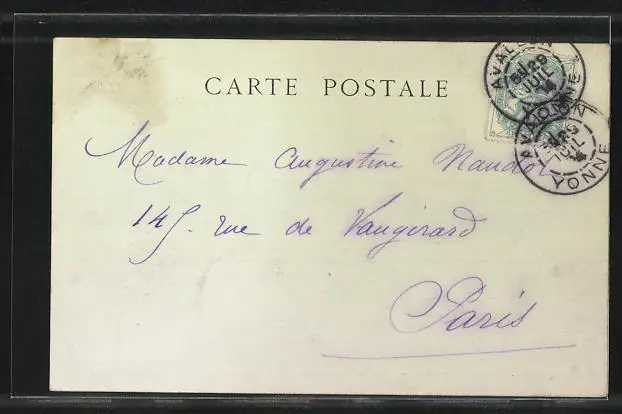 CARTE POSTALE
AVALLON
29
JUIL
YONNE
AVALLON
JUIL
YONNE
Madame Augustine Naudot
145. rue de Vaugirard
Paris